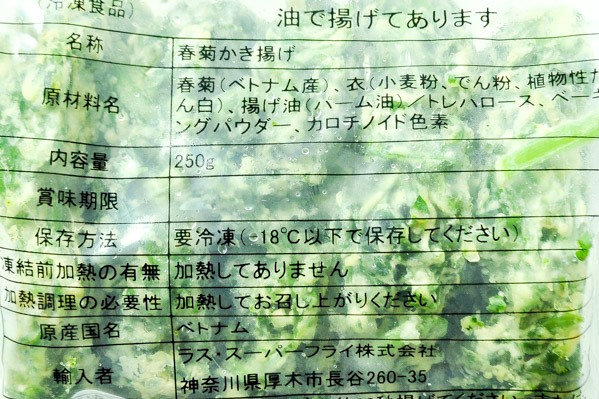 (冷凍食品)
油で揚げてあります
名称 春菊かき揚げ
原材料名 春菊(ベトナム産)、衣(小麦粉、でん粉、植物性た
ん白)、揚げ油(パーム油)/トレハロース、ベーキ
ングパウダー、カロチノイド色素
内容量 250g
賞味期限
保存方法 要冷凍(-18℃以下で保存してください)
凍結前加熱の有無 加熱してありません
加熱調理の必要性 加熱してお召し上がりください
原産国名 ベトナム
輸入者 ラス・スーパーフライ株式会社
神奈川県厚木市長谷260-35